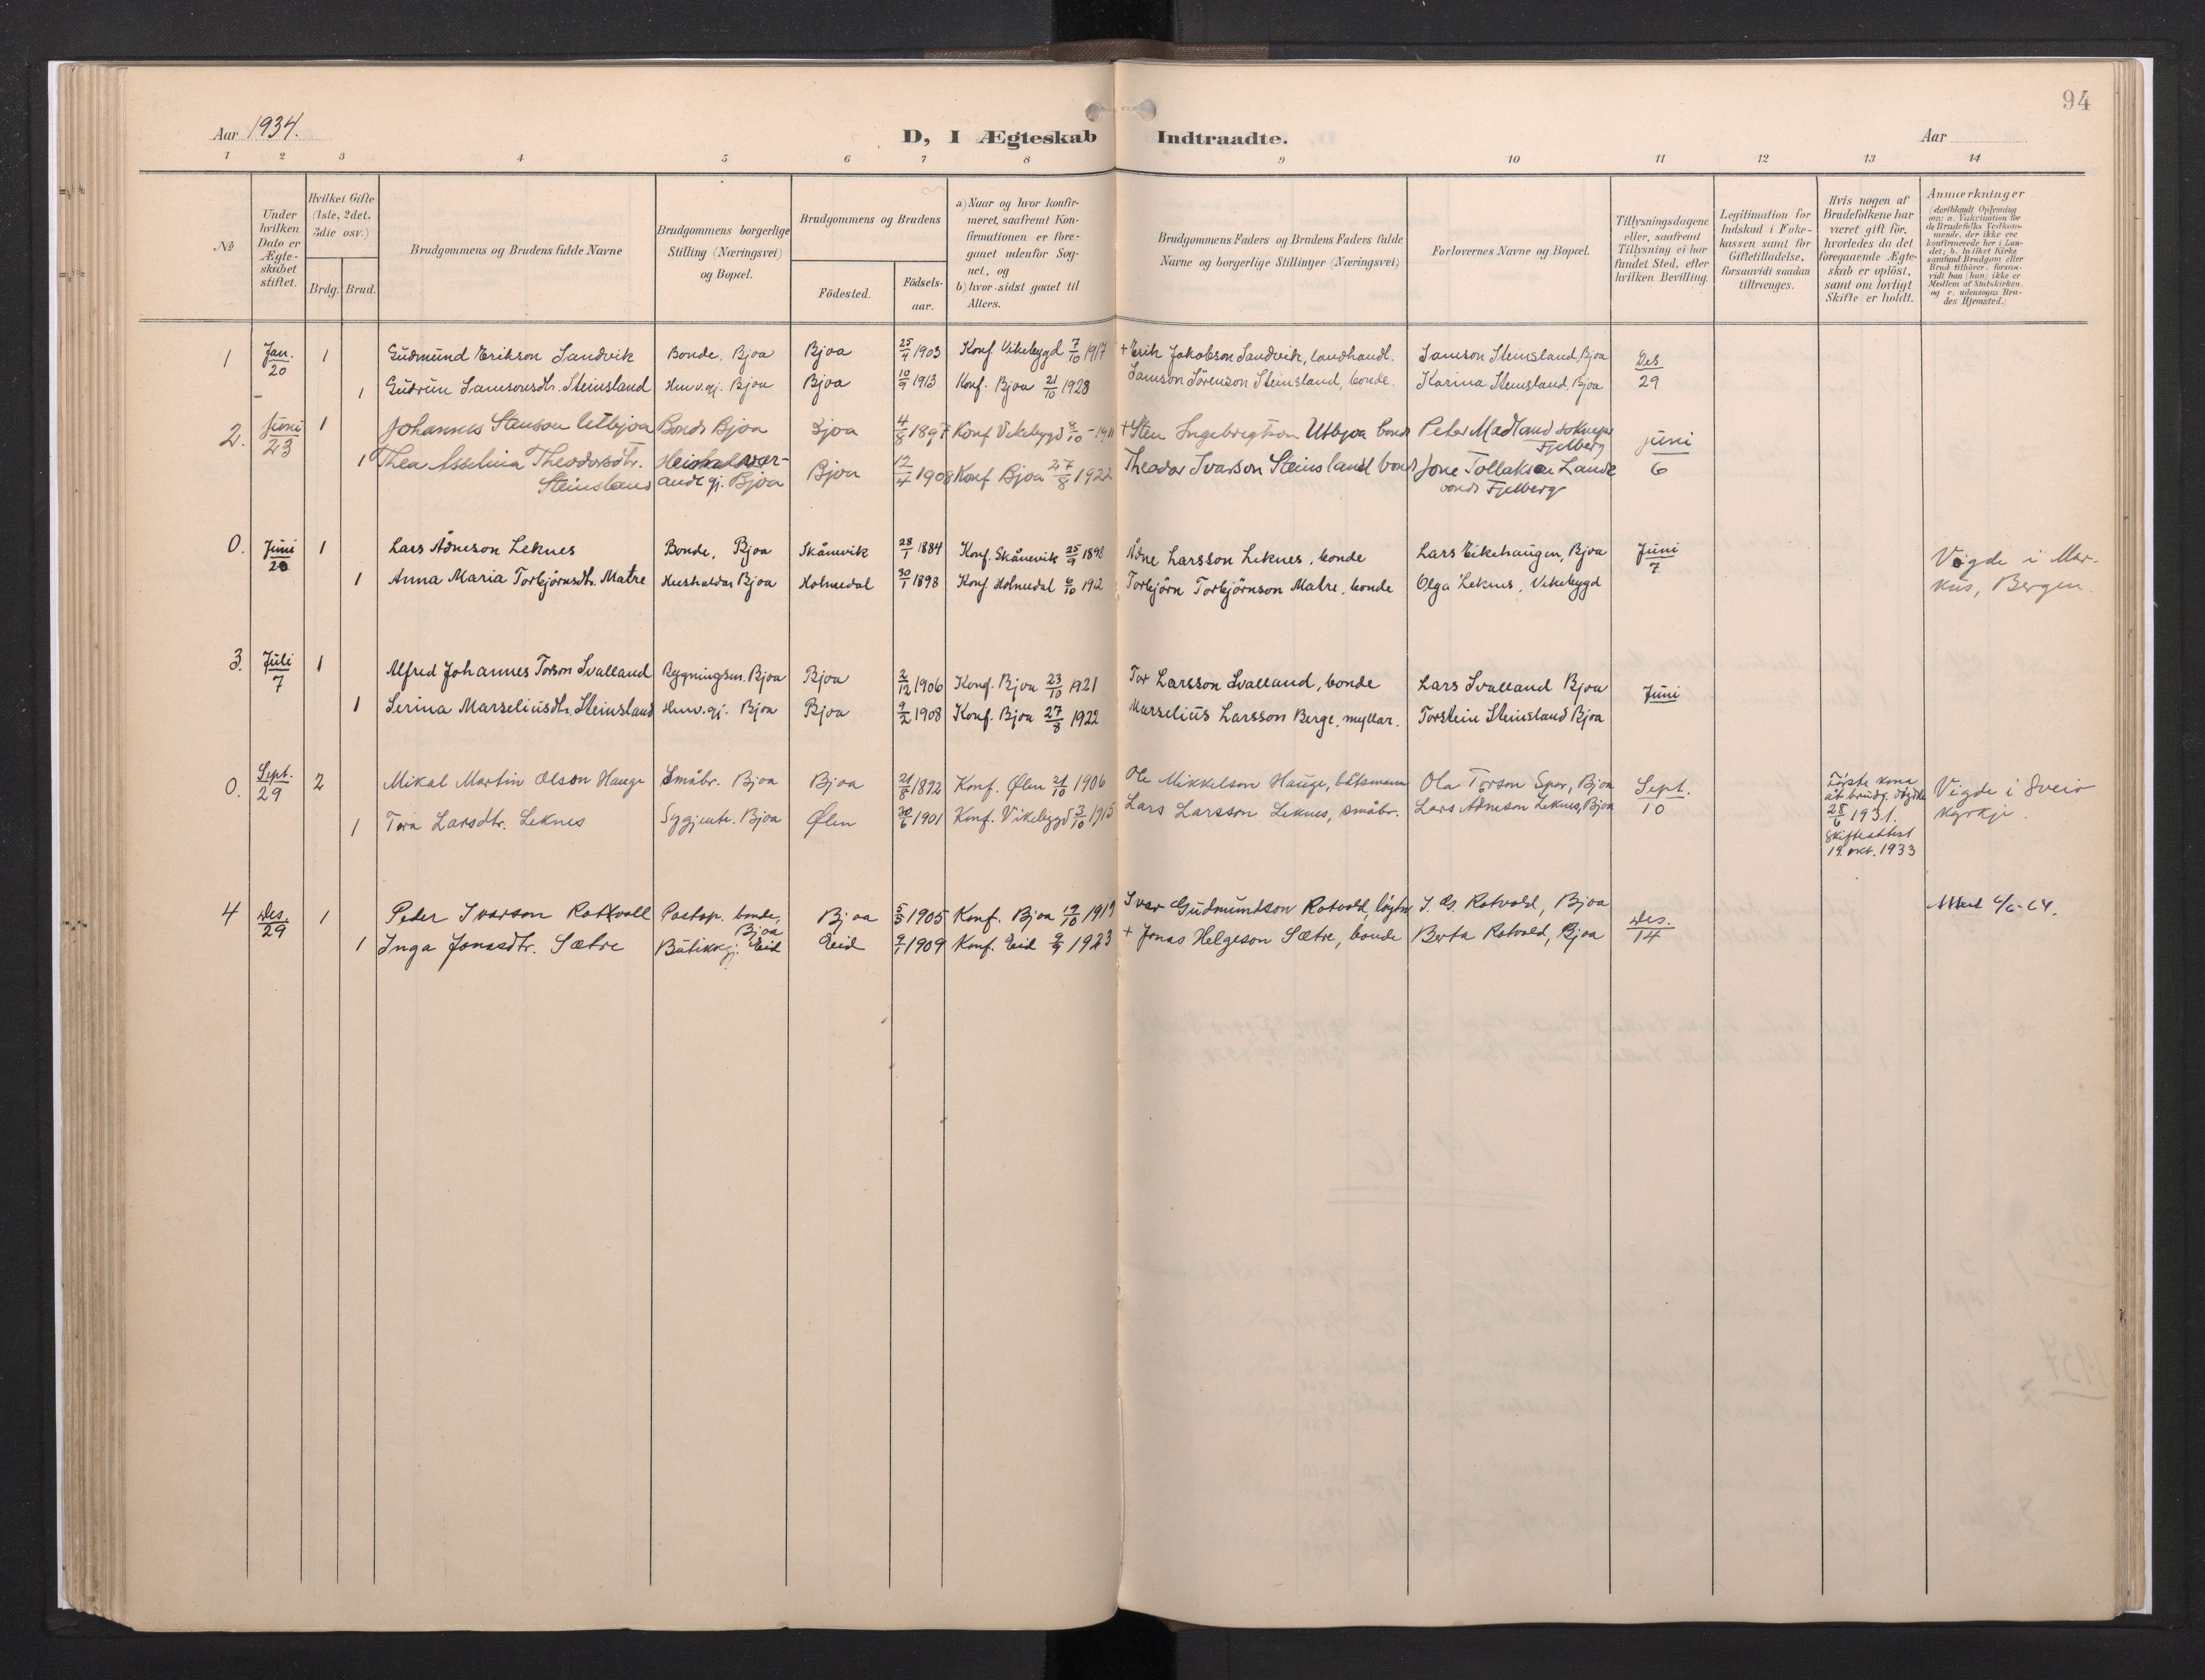 94
Aar 1934.
D, I Ægteskab Indtraadte.
Aar
1 2 3 4 5 6 7 8 9 10 11 12 13 14
№
Under hvilken Dato er Ægteskabet stiftet.
Hvilket Gifte (1ste, 2det, 3die osv.)
Brdg. Brud.
Brudgommens og Brudens fulde Navne
Brudgommens borgerlige Stilling (Næringsvei) og Bopæl.
Brudgommens og Brudens
Födested.
Födselsaar.
a) Naar og hvor konfirmeret, saafremt Konfirmationen er foregaaet udenfor Sognet, og
b) hvor sidst gaaet til Alters.
Brudgommens Faders og Brudens Faders fulde Navne og borgerlige Stillinger (Næringsvei)
Forlovernes Navne og Bopæl.
Tillysningsdagene eller, saafremt Tillysning ei har fundet Sted, efter hvilken Bevilling.
Legitimation for Indskud i Enkekassen samt for Giftetilladelse, forsaavidt saadan tiltrænges.
Hvis nogen af Brudefolkene har været gift før, hvorledes da det foregaaende Ægteskab er oplöst, samt om lovligt Skifte er holdt.
Anmærkninger
(deriblandt Oplysning om: a. Vakcination for de Brudefolks Vedkommende, der ikke ere konfirmerede her i Landet; b. hvilket Kirkesamfund Brudgom eller Brud tilhörer, forsaavidt han (hun) ikke er Medlem af Statskirken, og c. udensogns Brudes Hjemsted.)
1 Jan. 20 1 Gudmund Erikson Sandvik Bonde, Bjoa Bjoa 25/4 1903 Konf. Vikebygd 7/10 1917 + Erik Jakobson Sandvik, landhandl. Samson Steinsland, Bjoa Des 29
- 1 Gudrun Samsonsdtr. Steinsland Husv.gj. Bjoa Bjoa 10/9 1913 Konf. Bjoa 21/10 1928 Samson Sörenson Steinsland, bonde. Karina Steinsland, Bjoa
2. Juni 23 1 Johannes Stenson Utbjoa Bonde Bjoa Bjoa 4/8 1897 Konf Vikebygd - 1911 + Sten Ingebregtson Utbjoa bonde Peter Madland Fjelberg juni 6
1 Thea Asselina Theodorsdtr. Steinsland Bjoa Bjoa 12/4 1908 Konf Bjoa 27/8 1922 Theodor Ivarson Steinsland bonde Jone Tollakson Lande bonde Fjelberg
0. Juni 20 1 Lars Ådneson Leknes Bonde, Bjoa Skånevik 28/1 1884 Konf. Skånevik 25/9 1898 Ådne Larsson Leknes, bonde Lars Eikehaugen, Bjoa Juni 7 Vigde i Markus, Bergen.
1 Anna Maria Torbjörnsdtr. Matre Hushaldar Bjoa Holmedal 30/1 1898 Konf. Holmedal 6/10 1912 Torbjörn Torbjörnson Matre, bonde Olga Leknes, Vikebygd
3. Juli 7 1 Alfred Johannes Torson Svalland Bygningsm. Bjoa Bjoa 2/12 1906 Konf. Bjoa 23/10 1921 Tor Larsson Svalland, bonde Lars Svalland Bjoa Juni
1 Serina Marseliusdtr. Steinsland Husv.gj. Bjoa Bjoa 9/2 1908 Konf. Bjoa 27/8 1922 Marselius Larsson Berge, myllar. Torstein Steinsland Bjoa
0. Sept. 29 2 Mikal Martin Olson Hauge Småbr. Bjoa Bjoa 21/8 1892 Konf. Ølen 21/10 1906 Ole Mikkelson Hauge, båtsmann Ola Torson Spor, Bjoa Sept. 10 Fyrste kona åt brudg. döydde 28/6 1931. Skifteattest 19. okt. 1933 Vigde i Sveio kyrkje.
1 Tora Larsdtr. Leknes Syjente. Bjoa Ølen 30/6 1901 Konf. Vikebygd 3/10 1915 Lars Larsson Leknes, småbr. Lars Adneson Leknes, Bjoa
4 Des. 29 1 Peder Ivarson Rotvoll Postop. bonde, Bjoa Bjoa 5/5 1905 Konf. Bjoa 19/10 1919 Ivar Gudmundson Rotvold, I. G. Rotvold, Bjoa Des. 14 Attest 4/6-64.
1 Inga Jonasdtr. Sætre Butikkgj. Eid Eid 9/7 1909 Konf. Eid 9/9 1923 + Jonas Helgeson Sætre, bonde Berta Rotvold, Bjoa